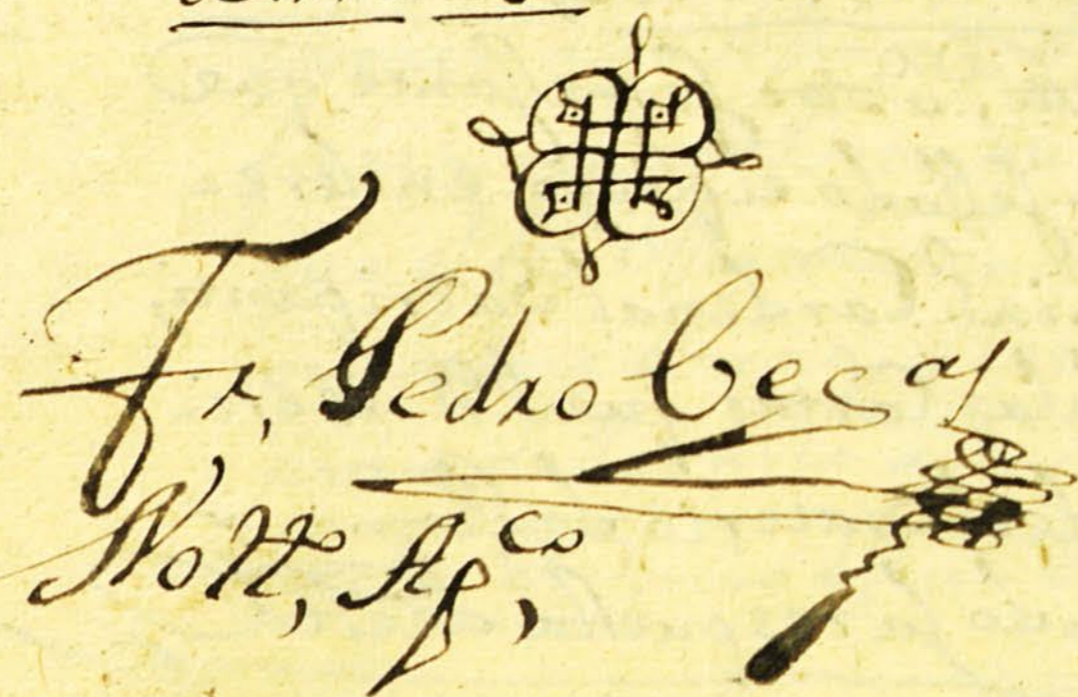 Fr, Pedro Cegas
Nott, App^co,